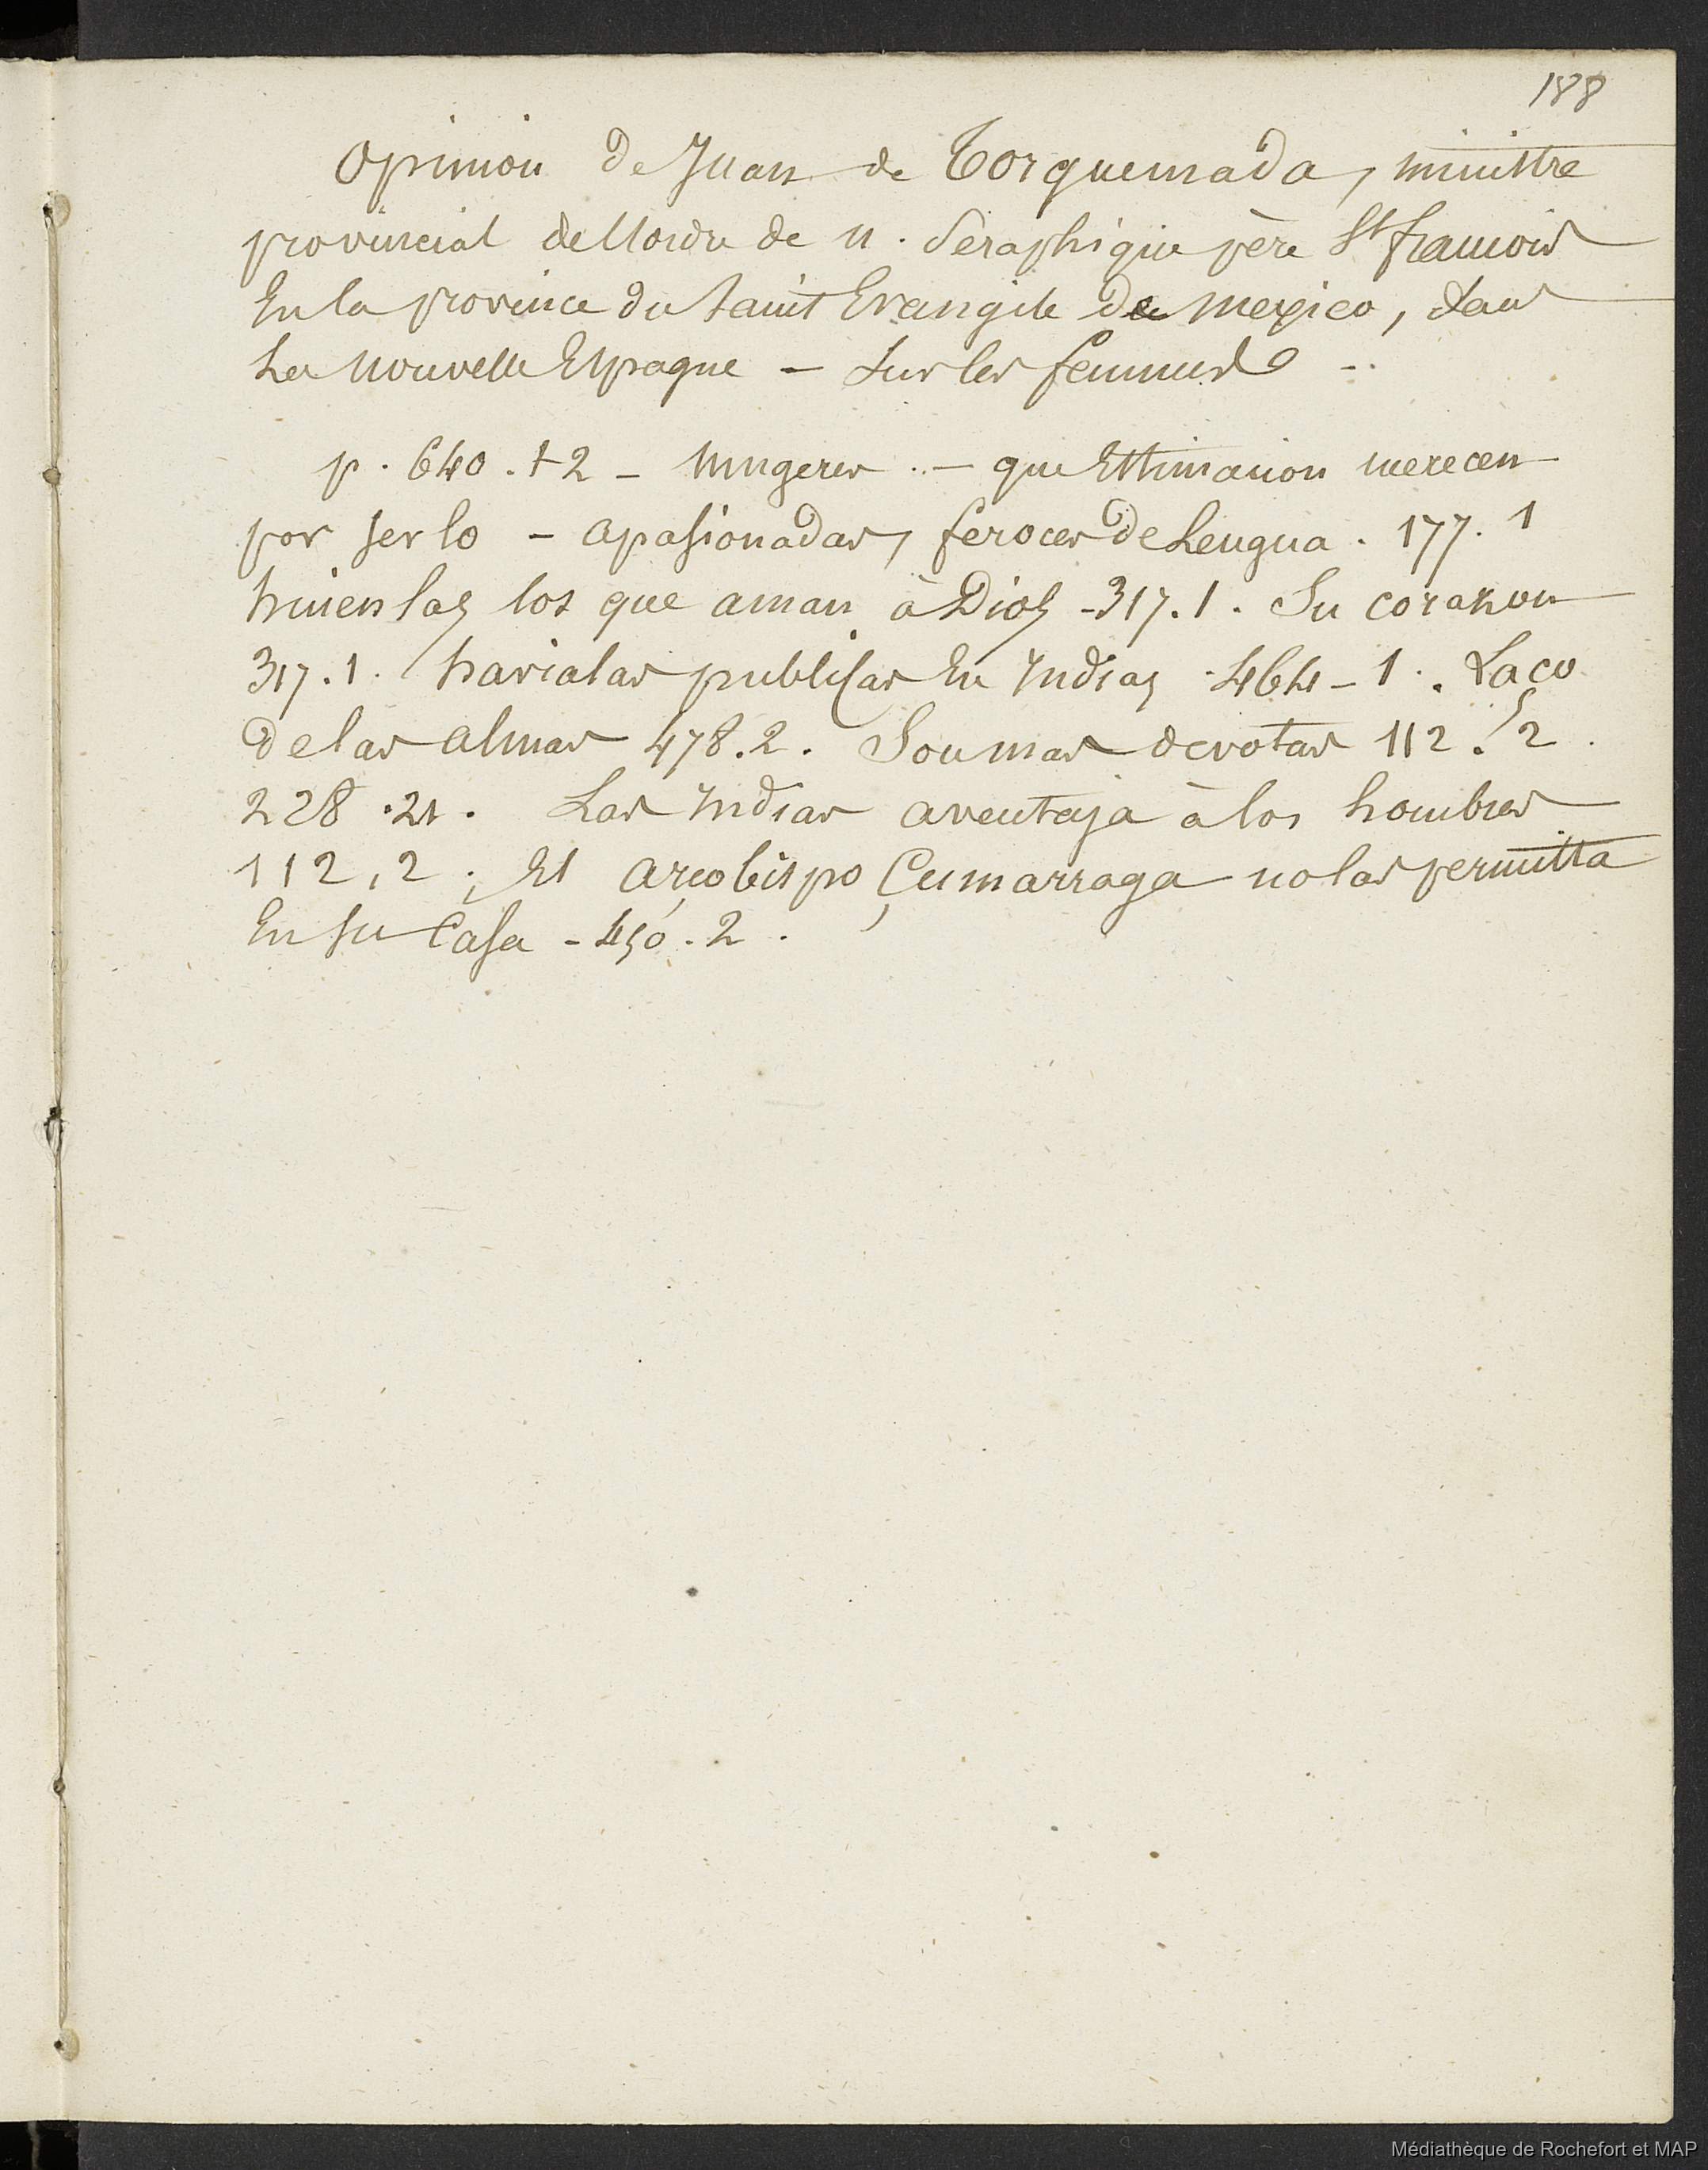 188
Opinion de Juan de Torquemada, ministre
provincial de l'ordre de n. Séraphique père St françois
En la province du saint Evangile de Mexico, dans
La Nouvelle Espagne – sur les femmes –.
p. 640. t 2 – Mugeres .. – que Estimacion merecen
por serlo – apasionadas, feroces de Lengua. 177. 1
huienlas los que aman à Dios – 317. 1. Su corazon
317. 1. havialas publicas En Indias 464 – 1. Laço
de las almas 478. 2. Son mas devotas 112. 2
228. 21. Las Indias aventaja à los hombres
112, 2. El arçobispo Çumarraga no las permitta
En su Casa – 450. 2.
Médiathèque de Rochefort et MAP